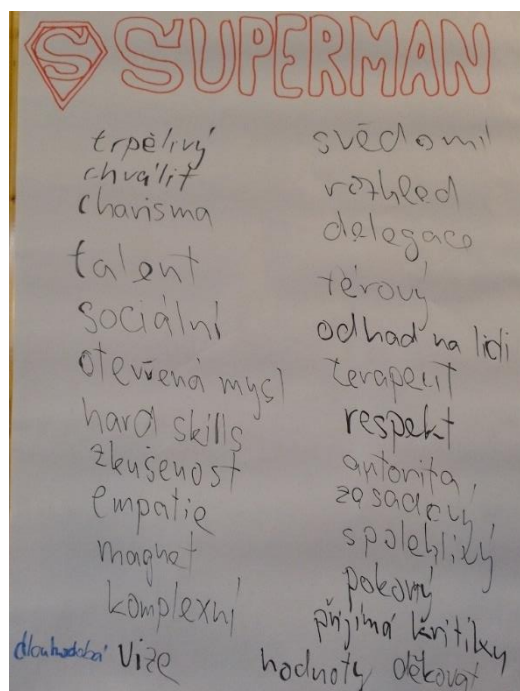 S SUPERMAN
trpělivý
chválit
charisma
talent
sociální
otevřená mysl
hard skills
zkušenost
empatie
magnet
komplexní
dlouhodobá vize
svědomí
rozhled
delegace
térový
odhad na lidi
terapeut
respekt
autorita
zásadový
spolehlivý
pokorný
přijímá kritiku
hodnoty děkovat